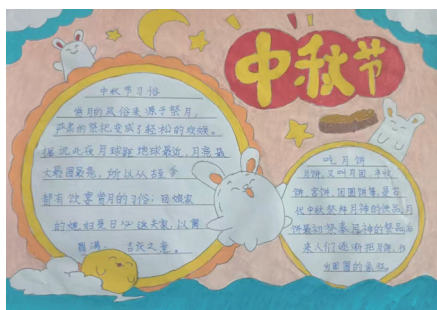 中秋节
中秋节习俗
赏月的风俗来源于祭月，
严肃的祭祀变成了轻松的欢娱。
据说此夜月球距地球最近，月亮最
大最圆最亮，所以从古至今
都有饮宴赏月的习俗；回娘家
的媳妇是日必返夫家，以寓
圆满、吉庆之意。
吃月饼
月饼，又叫月团、丰收
饼、宫饼、团圆饼等，是古
代中秋祭拜月神的供品，月
饼最初祭奉月神的祭品，后
来人们逐渐把月饼，作
为团圆的象征。